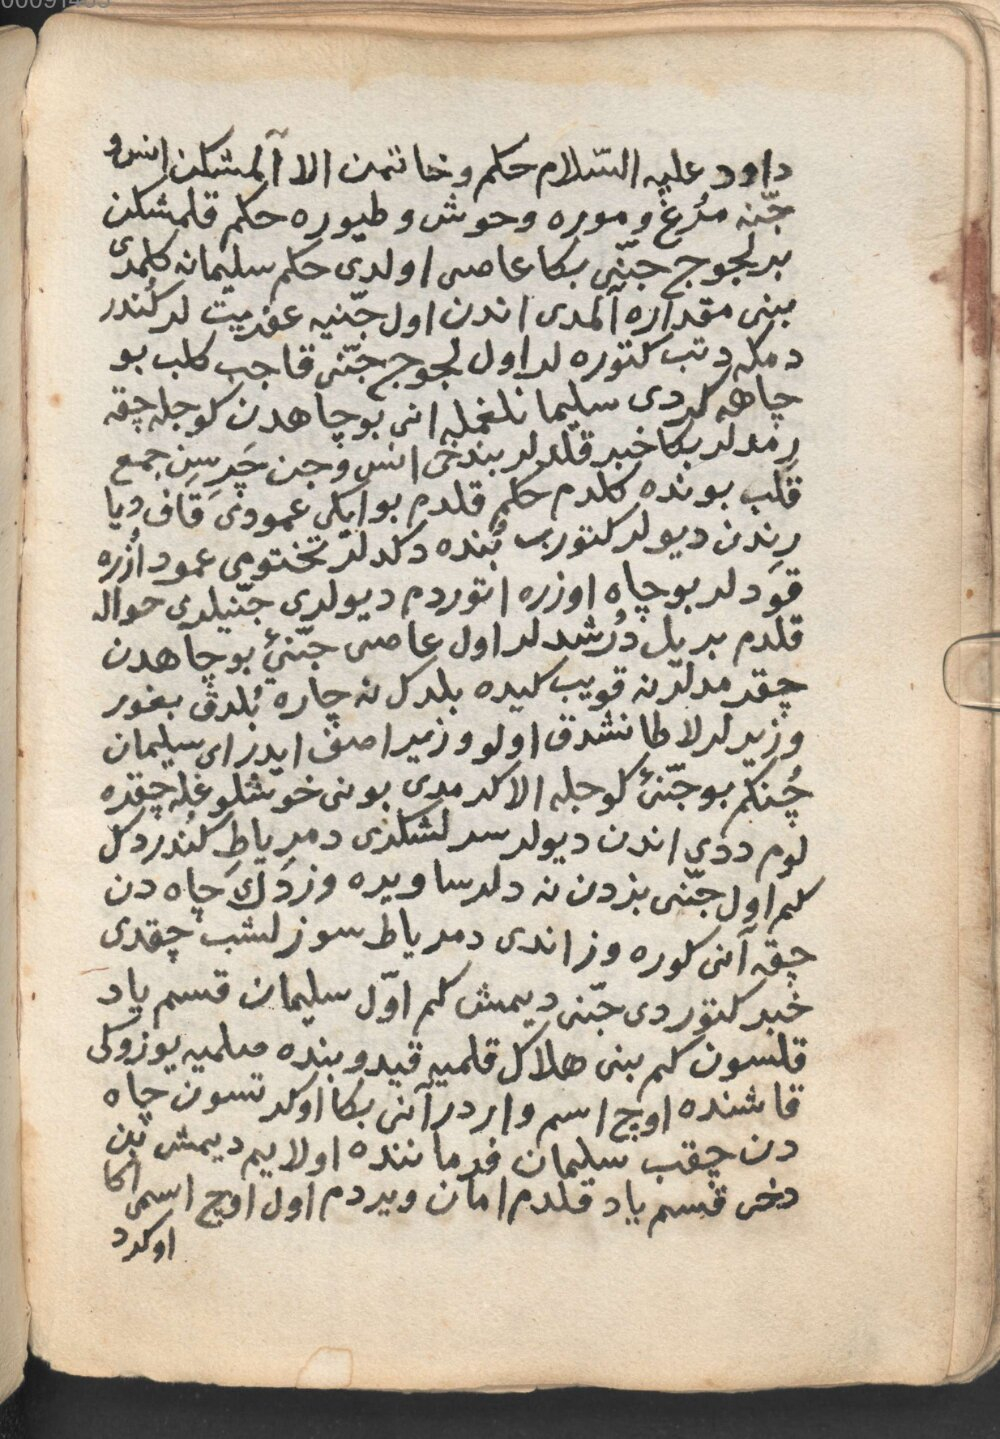 00091463
داود عليه السّلام حكم و خاتمن الا آلمشكن انس و
جّنه مرُغ و موره و حوش و طيوره حكم قلمشكن
بر لجوج جنّى بكا عاصى اولدى حكم سليمانه كلمدى
بينى مقداره آلمدى اندن اول جنّيه عفريت لر كُندر
دمكه دتب كتوره لر اول لجوج جنّى قاجب كلب بو
چاهه كردى سليمانلغمله انى بو چاهدن كوجله چقه
رمدلر بكا خبر قلدلر بندخى انس و جن چَرسِن جمع
قَلب بونده كلدم حكم قلدم بو ايكى عمودى قاف ديا
رِندن ديولر كتورب بُنده دكدلر تختومى عمود اُزره
قودلر بو چاه اوزره اتوردم ديولرى جنّيلرى حواله
قلدم بر ييل دُرُشدلر اول عاصى جنّيئ بو چاهدن
چقرمدلر نه قويب كيده بلدك نه چاره بُلدق بغور
وزيرلرلا طانشدق اولو وزير اصف ايدر اى سليمان
چُنكم بو جنّئ كوجله الا كرمدى بونى خوشلوغله چقره
لوم ددى اندن ديولر سرلشكرى دمرياطِ كُندردك
كم اول جنّى بزدن نه دلرسا ويره وز دَك چاه دن
چقه آنى كوره وز اندى دمرياط سوزلشب چقدى
خبر كتوردى جنّى ديمش كم اوّل سليمان قسم ياد
قلسون كم بنى هلاك قلميه قيدو بنده صلميه يوزوكى
قاشنده اوچ اسم واردر آنى بكا اوكرتسون چاه
دن چقب سليمان فرماننده اولايم ديمش بن
دخى قسم ياد قلدم امان ويردم اول اوچ اسمى اكا
اوكرد